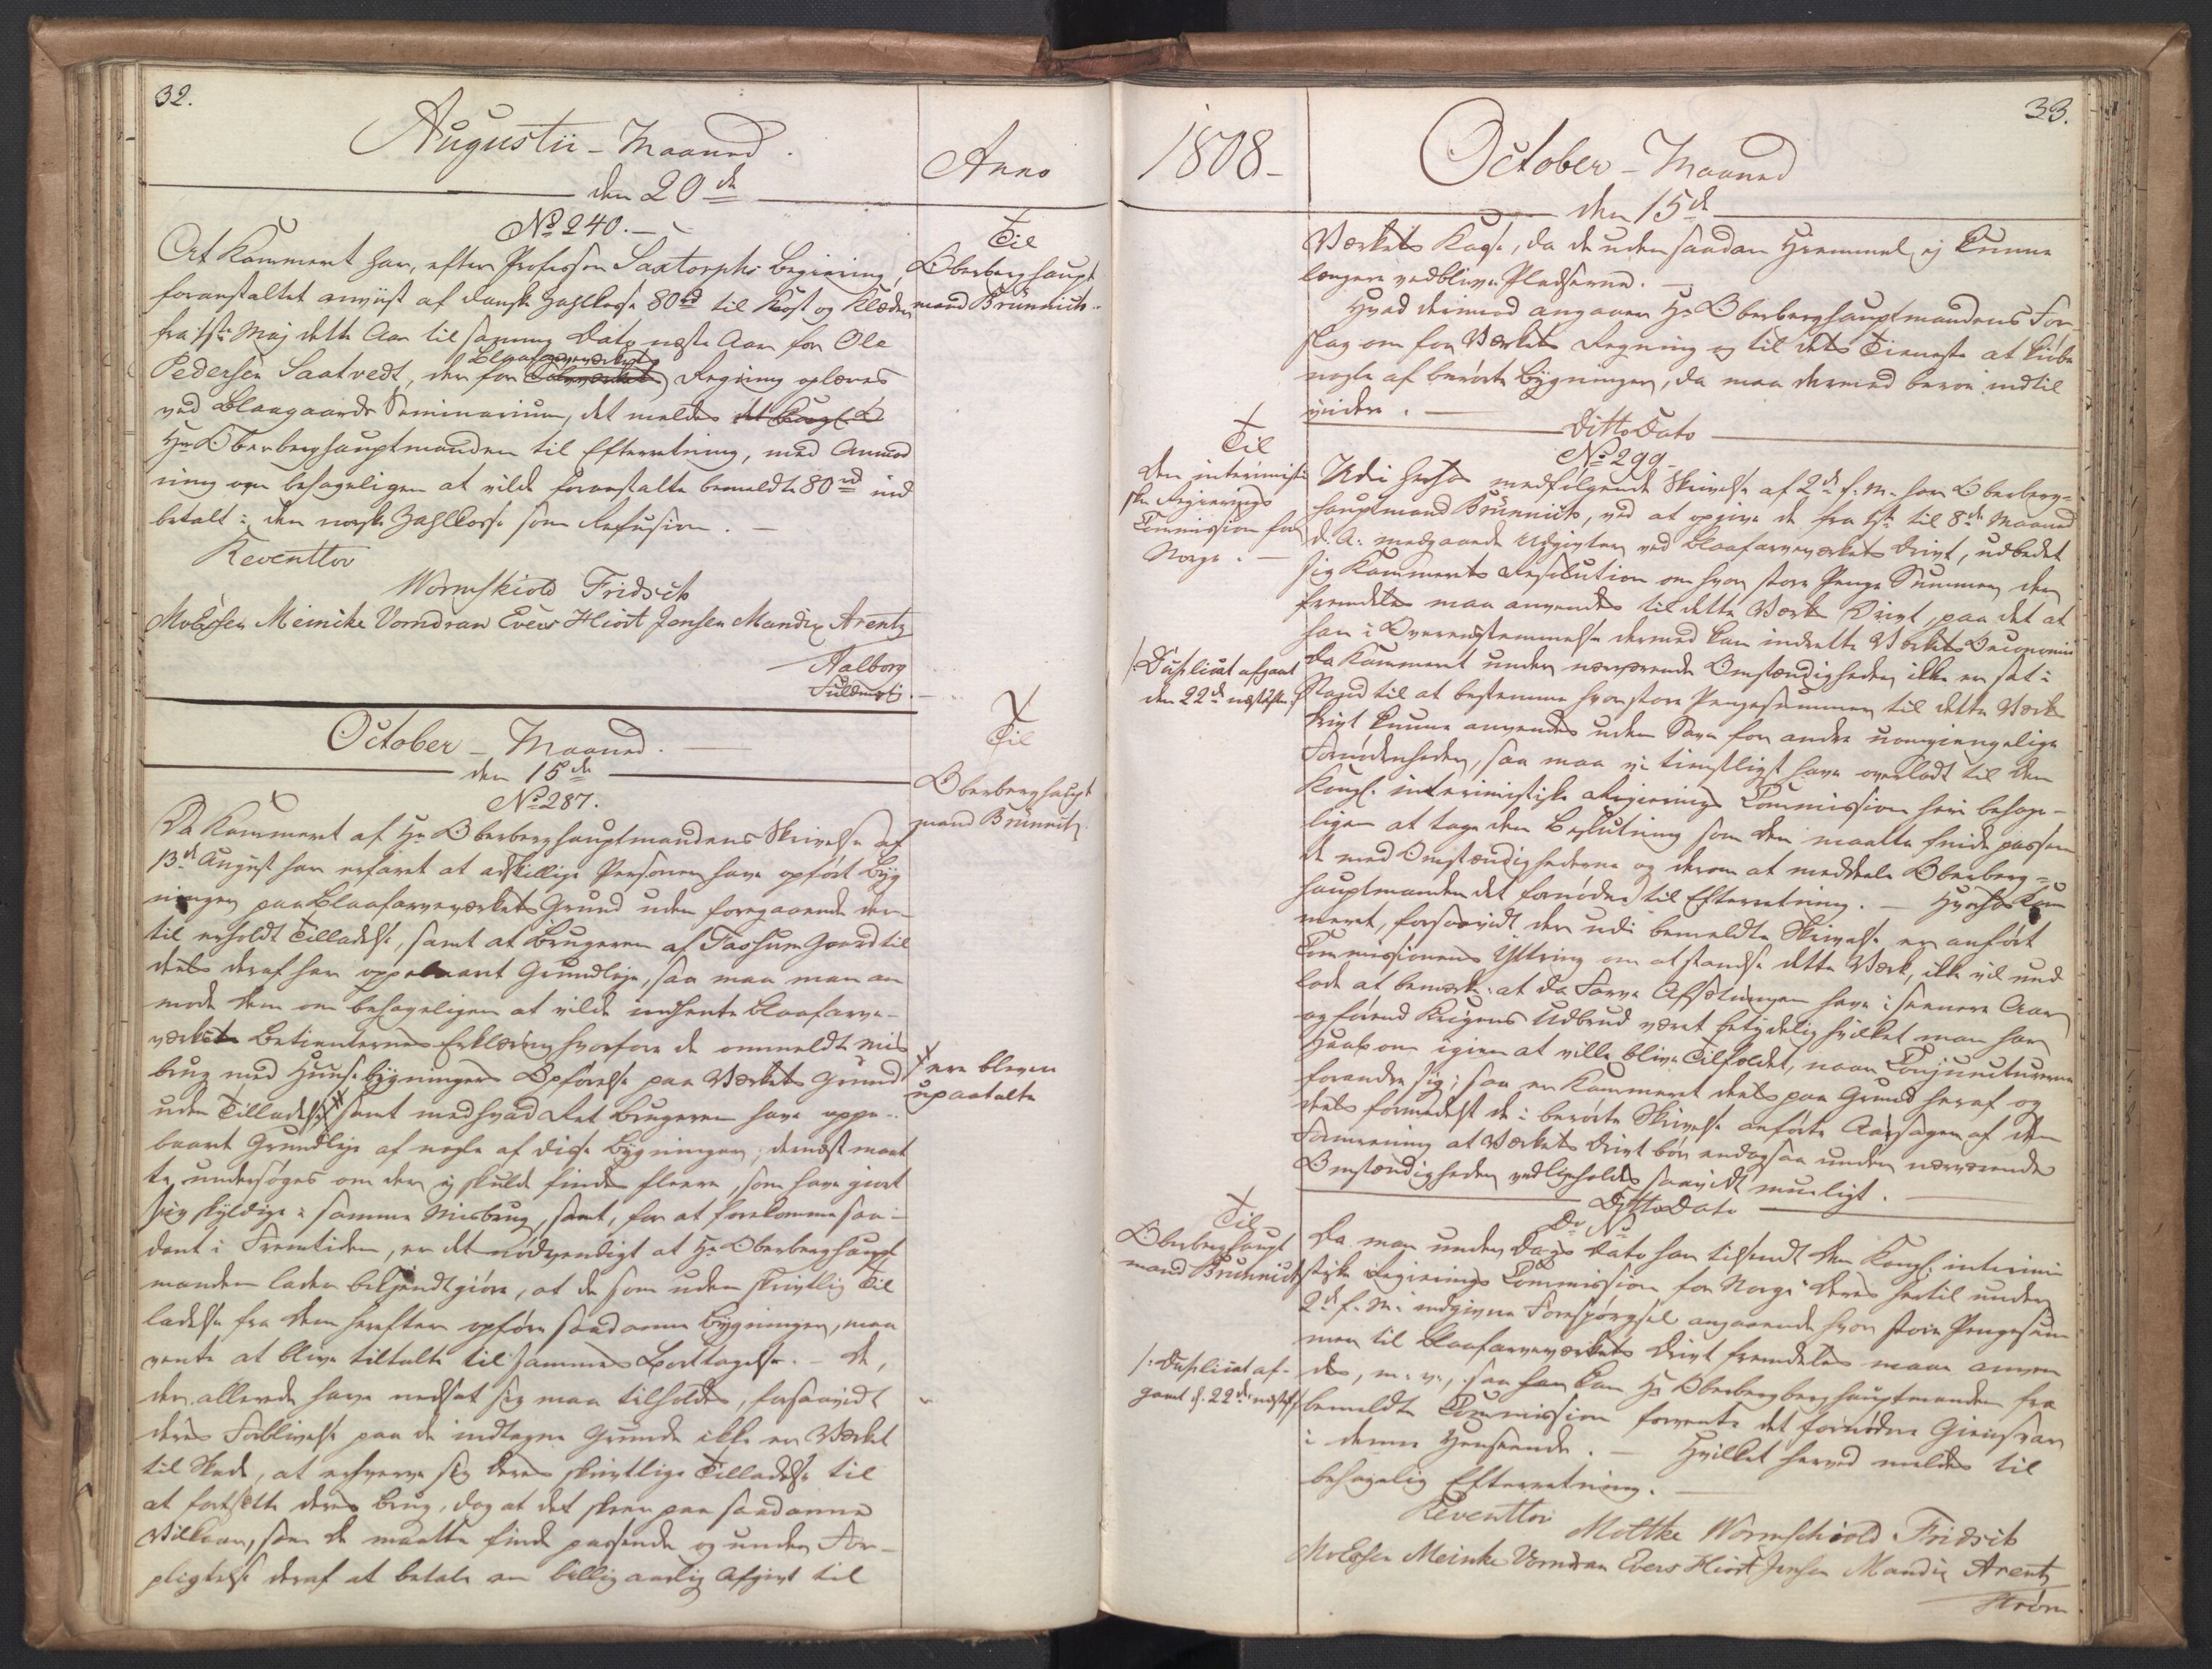 32.
Augustii - Maaned.
Anno
den 20de
No 240. -
Til
Oberberghaupt
mand Brünnich.
At Kammeret har, efter Professor Saxtorphs Begiering,
foranstaltet anviist af danske Zahlkasse 80 rd til Kost og Klæder
fra 1ste Maj dette Aar til samme Dato næste Aar for Ole
Blaafarveværkets
Pedersen Saatvedt, der for Sølvværkets Regning oplæres
ved Blaagaards Seminarium, det meldes
Hr Oberberghauptmanden til Efterretning, med Anmod
ning om behageligen at vilde foranstalte bemeldte 80 rd ind
betalt i den norske Zahlkasse som Refusion. -
Reventlov
Wormskiold Fridsch
Mvössen Meinike Vorndran Evers Hiort Jensen Mandix Arentz
Aalborg
Fuldmægtig.
October - Maaned.
den 15de
No 287.
Til
Oberberghaupt
mand Brünnich.
Da Kammeret af Hr Oberberghauptmandens Skrivelse af
13de August har erfaret at adskillige Personer have opført Byg
ninger paa Blaafarveværkets Grund uden foregaaende der-
til erholdt Tilladelse, samt at Brugeren af Fossum Gaard til
deels deraf har oppebaaret Grundleje, saa maa man an
mode Dem om behageligen at vilde indhente Blaafarve-
værkets Betienternes Erklæring hvorfore de ommeldte Mis
brug med Huuse bygningers Opførelse paa Værkets Grund
uden Tilladelse # samt med hvad Ret Brugeren have oppe-
# ere bleven
upaatalte
baaret Grundleje af nogle af disse Bygninger; dernæst maat
te undersøges om der ej skulde findes fleere, som have giort
sig skyldige i samme Misbrug, samt, for at forekomme saa-
dant i Fremtiden, er det nødvendigt at Hr Oberberghaupt
manden lader bekjendtgiøre, at de som uden skriftlig Til
ladelse fra Dem herefter opføre saadanne Bygninger, maa
vente at blive tiltalte til sammes Borttagelse. - De,
der allerede have nedsat sig maa tilholdes, forsaavidt
deres Forblivelse paa de indtagne Grunde ikke er Værket
til Skade, at erhverve sig Deres skriftlige Tilladelse til
at fortsætte deres Brug, dog at det skeer paa saadanne
Vilkaar, som De maatte finde passende og under For-
pligtelse deraf at betale en billig aarlig Afgivt til
1808 -
October - Maaned
33.
den 15de
Værkets Kasse, da de uden saadan Hiemmel, ej kunne
længere vedblive Pladserne. -
Hvad derimod angaaer Hr Oberberghauptmandens For-
slag om for Værkets Regning og til dets Tieneste at kiøbe
nogle af berørte Bygninger, da maa dermed beroe indtil
videre. -
Ditto Dato
No 299
Til
den interimisti
ske Regierings
Commission for
Norge. -
Udi herhos medfølgende Skrivelse af 2de f. M. har Oberberg-
hauptmand Brünnich, ved at opgive de fra 1ste til 8de Maaned
d. A. medgaaede Udgivter ved Blaafarveværkets Drivt, udbedet
sig Kammerets Resolution om hvor store Penge Summer der
fremdeles maa anvendes til dette Værks Drivt, paa det at
han i Overeensstemmelse dermed kan indrette Værkets Oeconomie
/: Duplicat afgaaet
den 22de næstefter :/
Da Kammeret under nærværende Omstændigheder ikke er sat i
Stand til at bestemme hvor store Pengesummer til dette Værks
Drivt kunne anvendes uden Savn for andre uomgiengelige
Fornødenheder, saa maa vi tienstligst have overladt til den
Kongl. interimistiske Regierings Commission heri behage-
ligen at tage den Beslutning som den maatte finde passen
de med Omstændighederne og derom at meddeele Oberberg-
hauptmanden det fornødne til Efterretning. - Hvorhos Kam
meret, forsaavidt der udi bemeldte Skrivelse er anført
Commissionens Yttring om at standse dette Værk, ikke vil und
lade at bemærke: at da Farve Afsætningen have i seenere Aar
og førend Krigens Udbrud været betydelig, hvilket man har
Haab om igien at ville blive Tilfældet, naar Conjuncturerne
forandre sig; saa er Kammeret deels paa Grund heraf og
deels formedelst de i berørte Skrivelse anførte Aarsager af den
Formeening at Værkets Drivt bør endogsaa under nærværende
Omstændigheder vedligeholdes saavidt mueligt. -
Ditto Dato
Do No
Til
Oberberghaupt
mand Brünnich
Da man under Dags Dato har tilsendt den Kongl. interimi
stiske Regierings Commission for Norge Deres hertil under
2de f. M. indgivne Forespørgsel angaaende hvor store Pengesum
mer til Blaafarveværkets Drivt fremdeles maae anven
des, m. v., saa kan Hr Oberbergberghauptmanden fra
/: Duplicat af-
gaaet d. 22de næstef. :/
bemeldte Commission forvente det fornødne Giensvar
i denne Henseende. - Hvilket herved meldes til
behagelig Efterretning. -
Reventlov
Moltke Wormskiold Fridsch
MvEssen Meinike Vorndran Evers Hiort Jensen Mandix Arentz
Strøm